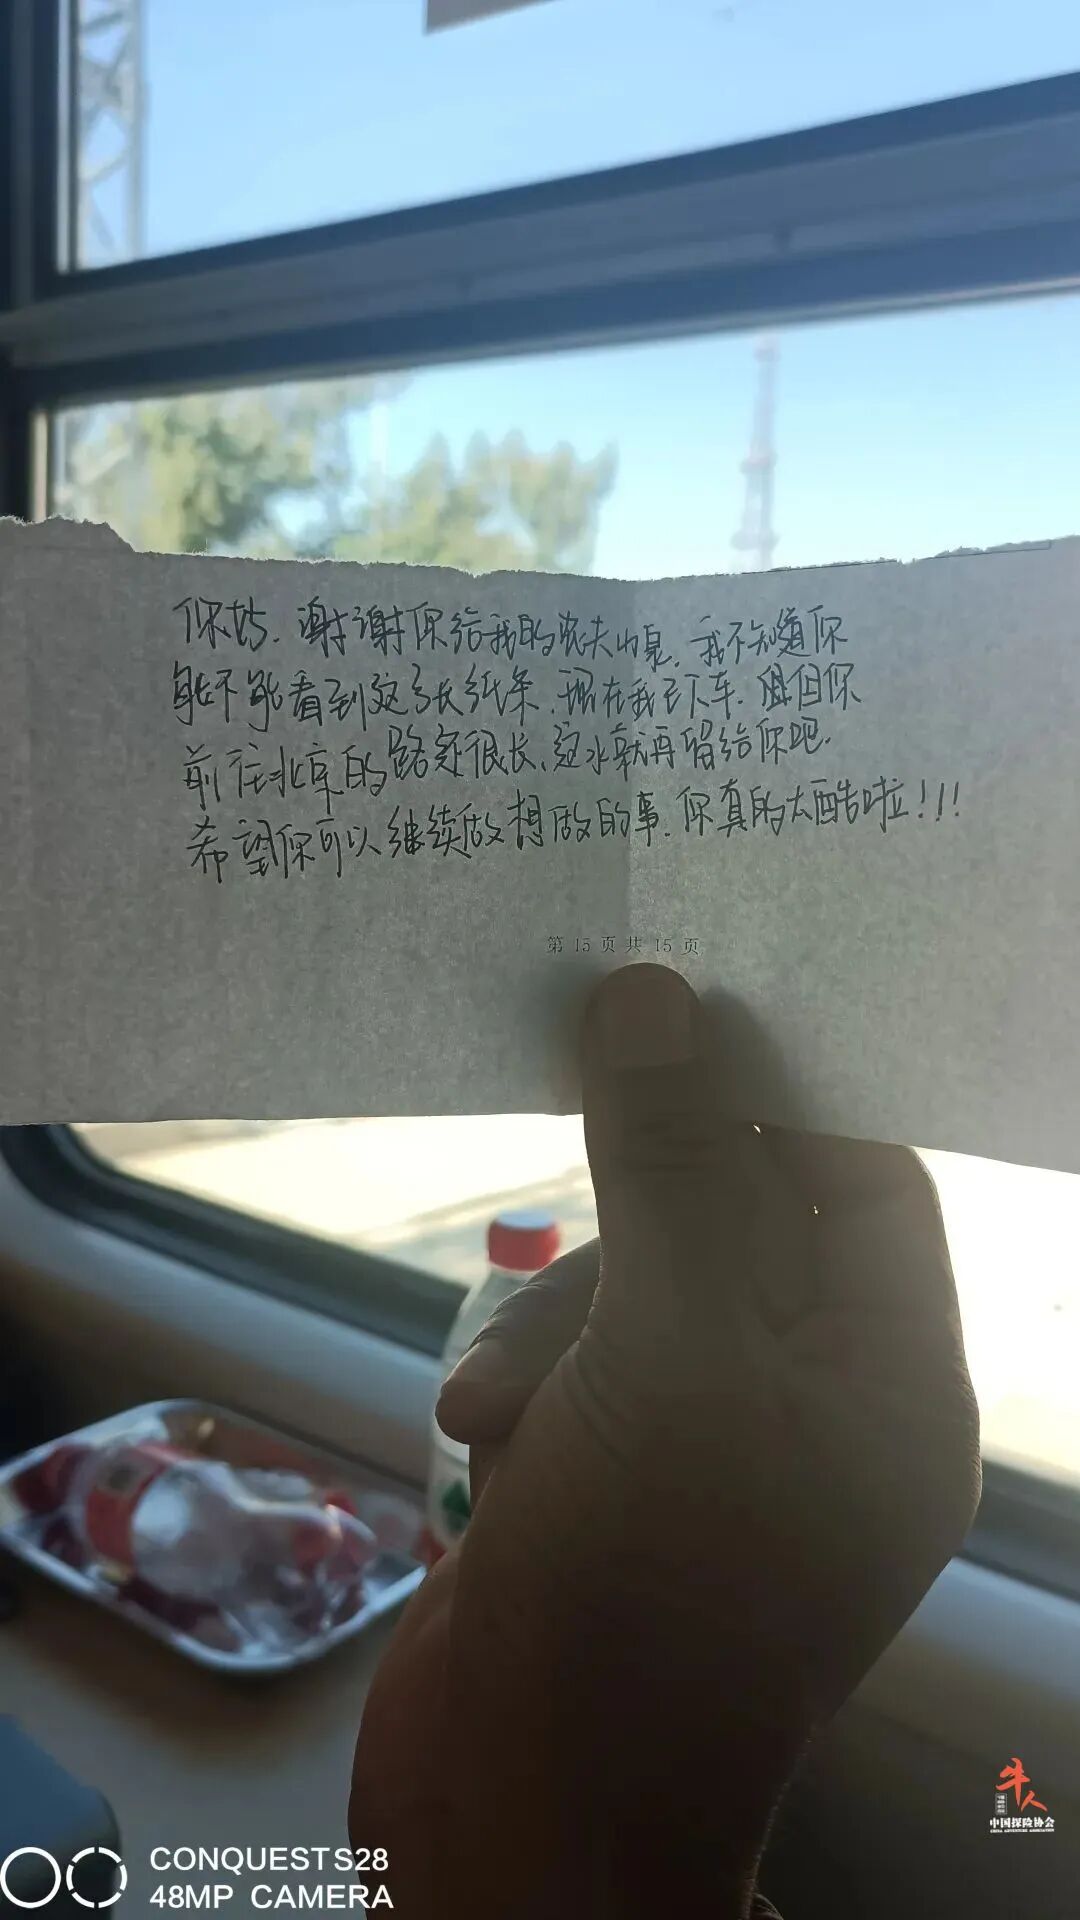 你好. 谢谢你给我的农夫山泉. 我不知道你
能不能看到这张纸条. 现在我已下车. 但你
前往北京的路途很长, 这水就再留给你吧.
希望你可以继续做想做的事. 你真的太酷啦!!!
第 15 页 共 15 页
牛人
中国探险协会
CHINA ADVENTURE ASSOCIATION
CONQUEST S28
48MP CAMERA